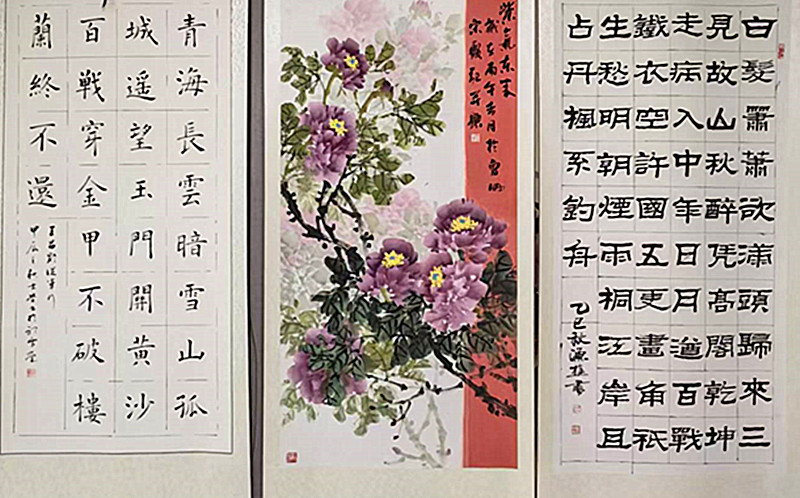 青海長雲暗雪山孤
城遥望玉門開黃沙
百戰穿金甲不破樓
蘭終不還
王昌齡從軍行
紫氣東來
白髮蕭蕭欲滿頭歸來三
見故山秋醉凭高閣乾坤
走病入中年日月遒百戰
鐵衣空許國五更畫角祇
生愁明朝煙雨桐江岸且
占丹楓系釣舟
乙巳秋